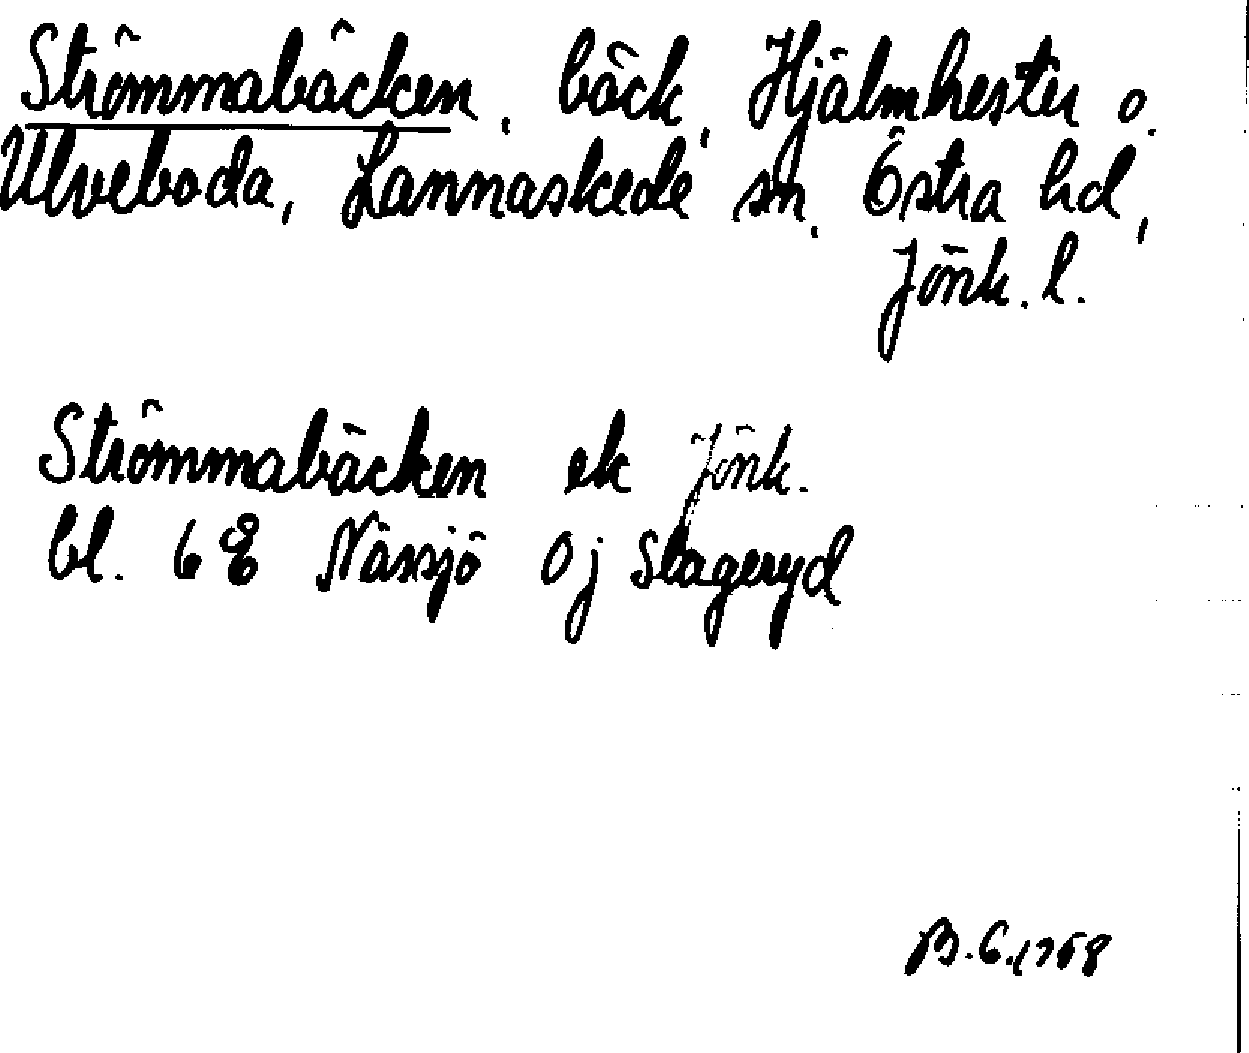 Strömmabäcken, bäck, Hjälmhester o.
Ulveboda, Lannaskede sn. Östra hd,
Jönk. l.
Strömmabäcken ek Jönk.
bl. 6 E Nässjö 0 j Stageryd
B.C.1968